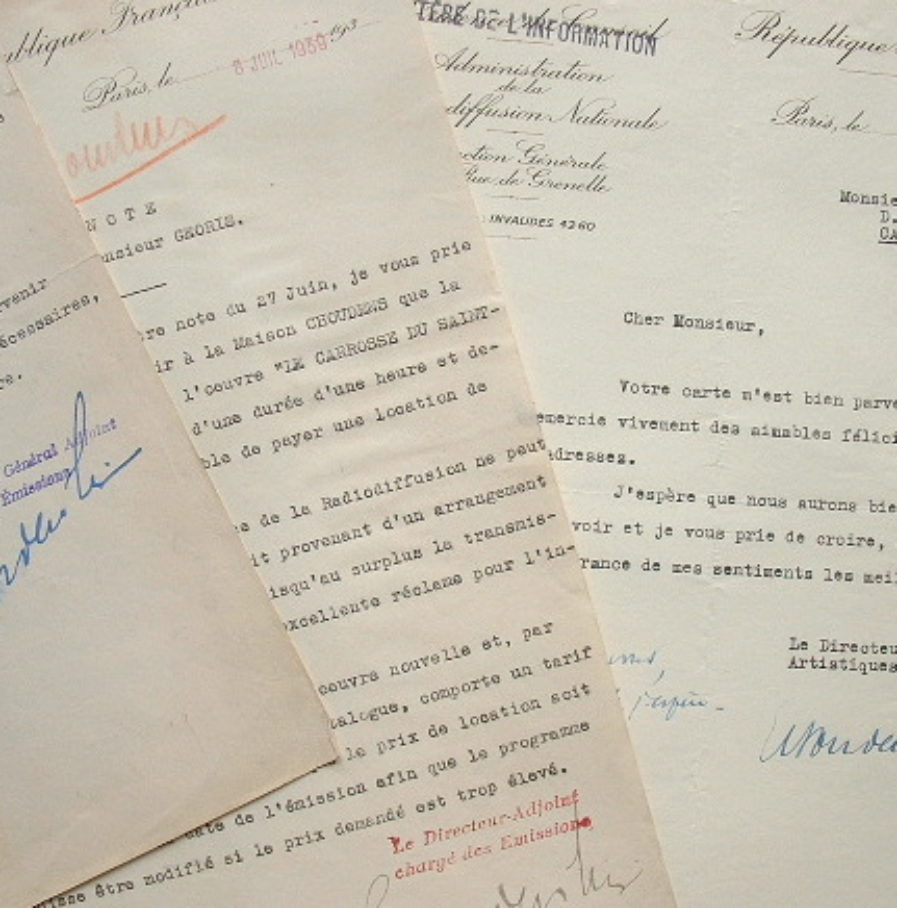 venir
écessaires,
re.
Général Adjoint
Émissions
ublique Française
Paris, le 8 JUIL 1939 193
NOTE
nsieur GEORIS.
re note du 27 Juin, je vous prie
ir à la Maison CHOUDENS que la
l'oeuvre "LE CARROSSE DU SAINT-
d'une durée d'une heure et de-
ble de payer une location de
e de la Radiodiffusion ne peut
it provenant d'un arrangement
isqu'au surplus la transmis-
xcellente réclame pour l'in-
oeuvre nouvelle et, par
talogue, comporte un tarif
le prix de location soit
date de l'émission afin que le programme
isse être modifié si le prix demandé est trop élevé.
Le Directeur-Adjoint
chargé des Emissions
TÈRE DE L'INFORMATION
Administration
de la
diffusion Nationale
ction Générale
Rue de Grenelle
INVALIDES 4260
République
Paris, le
Monsie
D.
CA
Cher Monsieur,
Votre carte m'est bien parve
emercie vivement des aimables félici
adresses.
J'espère que nous aurons bie
voir et je vous prie de croire,
rance de mes sentiments les meil
Le Directeu
Artistiques